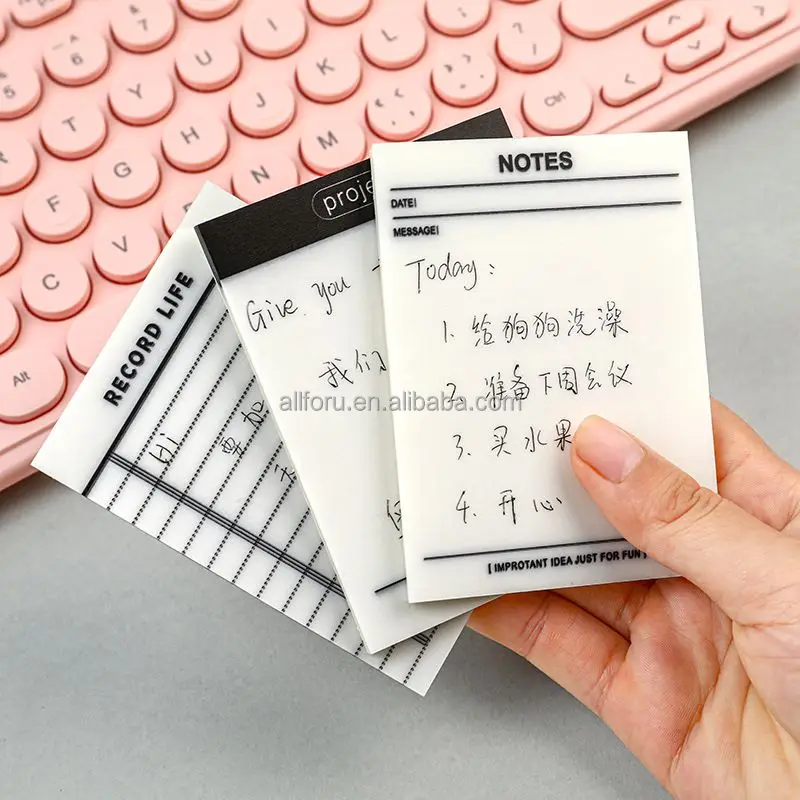 NOTES
DATE:
MESSAGE:
Today:
1. 给狗狗洗澡
2. 准备下周会议
3. 买水果
4. 开心
[ IMPROTANT IDEA JUST FOR FUN ]
proje
Give you
我们
RECORD LIFE
Hi
要加
allforu.en.alibaba.com
5
6
7
8
T
Y
U
I
O
P
F
G
H
J
K
L
C
V
B
N
M
Alt
Ctrl